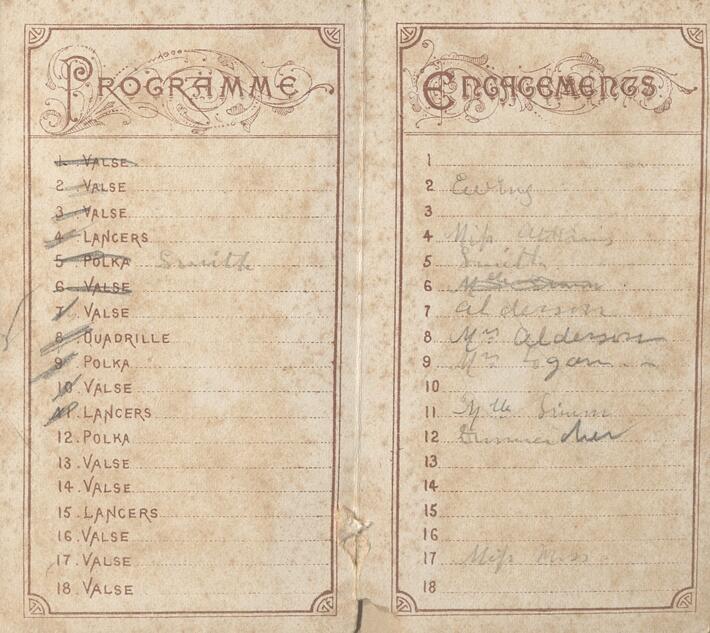 PROGRAMME
1. VALSE
2 VALSE
3. VALSE
4. LANCERS
5. POLKA Smith
6. VALSE
7. VALSE
8. QUADRILLE
9. POLKA
10 VALSE
LANCERS
12. POLKA
13. VALSE
14. VALSE
15. LANCERS
16. VALSE
17. VALSE
18. VALSE
ENGAGEMENTS
1
2 Ewing
3
4 Miss
5 Smith
6
7 Alderson
8 Mrs Alderson
9 Mrs Logan
10
11
12
13
14
15
16
17 Miss
18